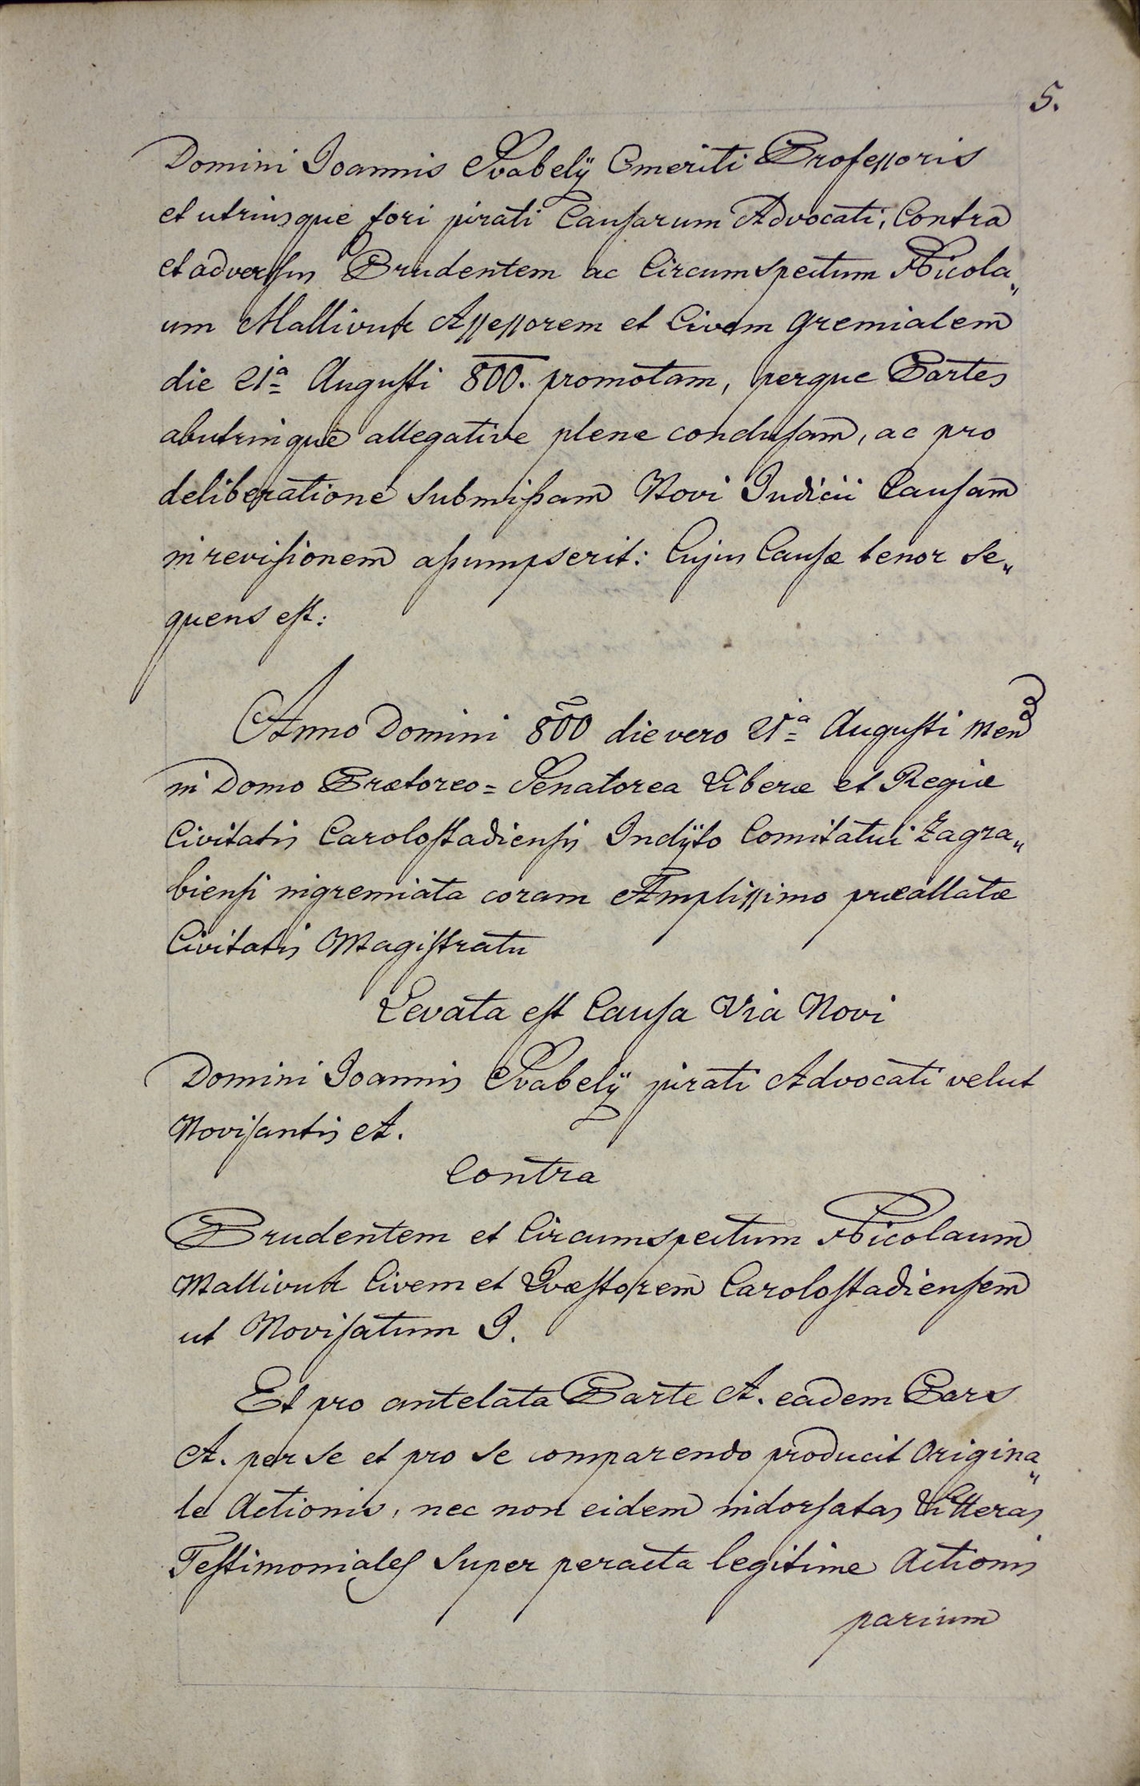 5.
Domini Joannis Svabelÿ Emeriti Professoris
et utriusque fori jurati Causarum Advocati, Contra
et adversus Prudentem ac Circumspectum Nicola„
um Mallivuk Assessorem et Civem gremialem
die 21ª Augusti 800. promotam, perque Partes
abutrinque allegative plene conclusam, ac pro
deliberatione submissam Novi Judicii Causam
in revisionem assumpserit: Cujus Causæ tenor se„
quens est:
Anno Domini 800 die vero 21ª Augusti
in Domo Prætoreo = Senatorea Liberæ et Regiæ
Civitatis Carolostadiensis Inclÿto Comitatui Zagra„
biensi ingremiata coram Amplissimo præallatæ
Civitatis Magistratu
Levata est Causa Via Novi
Domini Joannis Svabelÿ jurati Advocati velut
Novisantis A.
Contra
Prudentem et Circumspectum Nicolaum
Mallivuk Civem et Quæstorem Carolostadiensem
ut Novisatum I.
Et pro antelata Parte A. eadem Pars
A. per se et pro se comparendo producit Origina„
le Actionis, nec non eidem indorsatas Litteras
Testimoniales super peracta legitime Actionis
parium